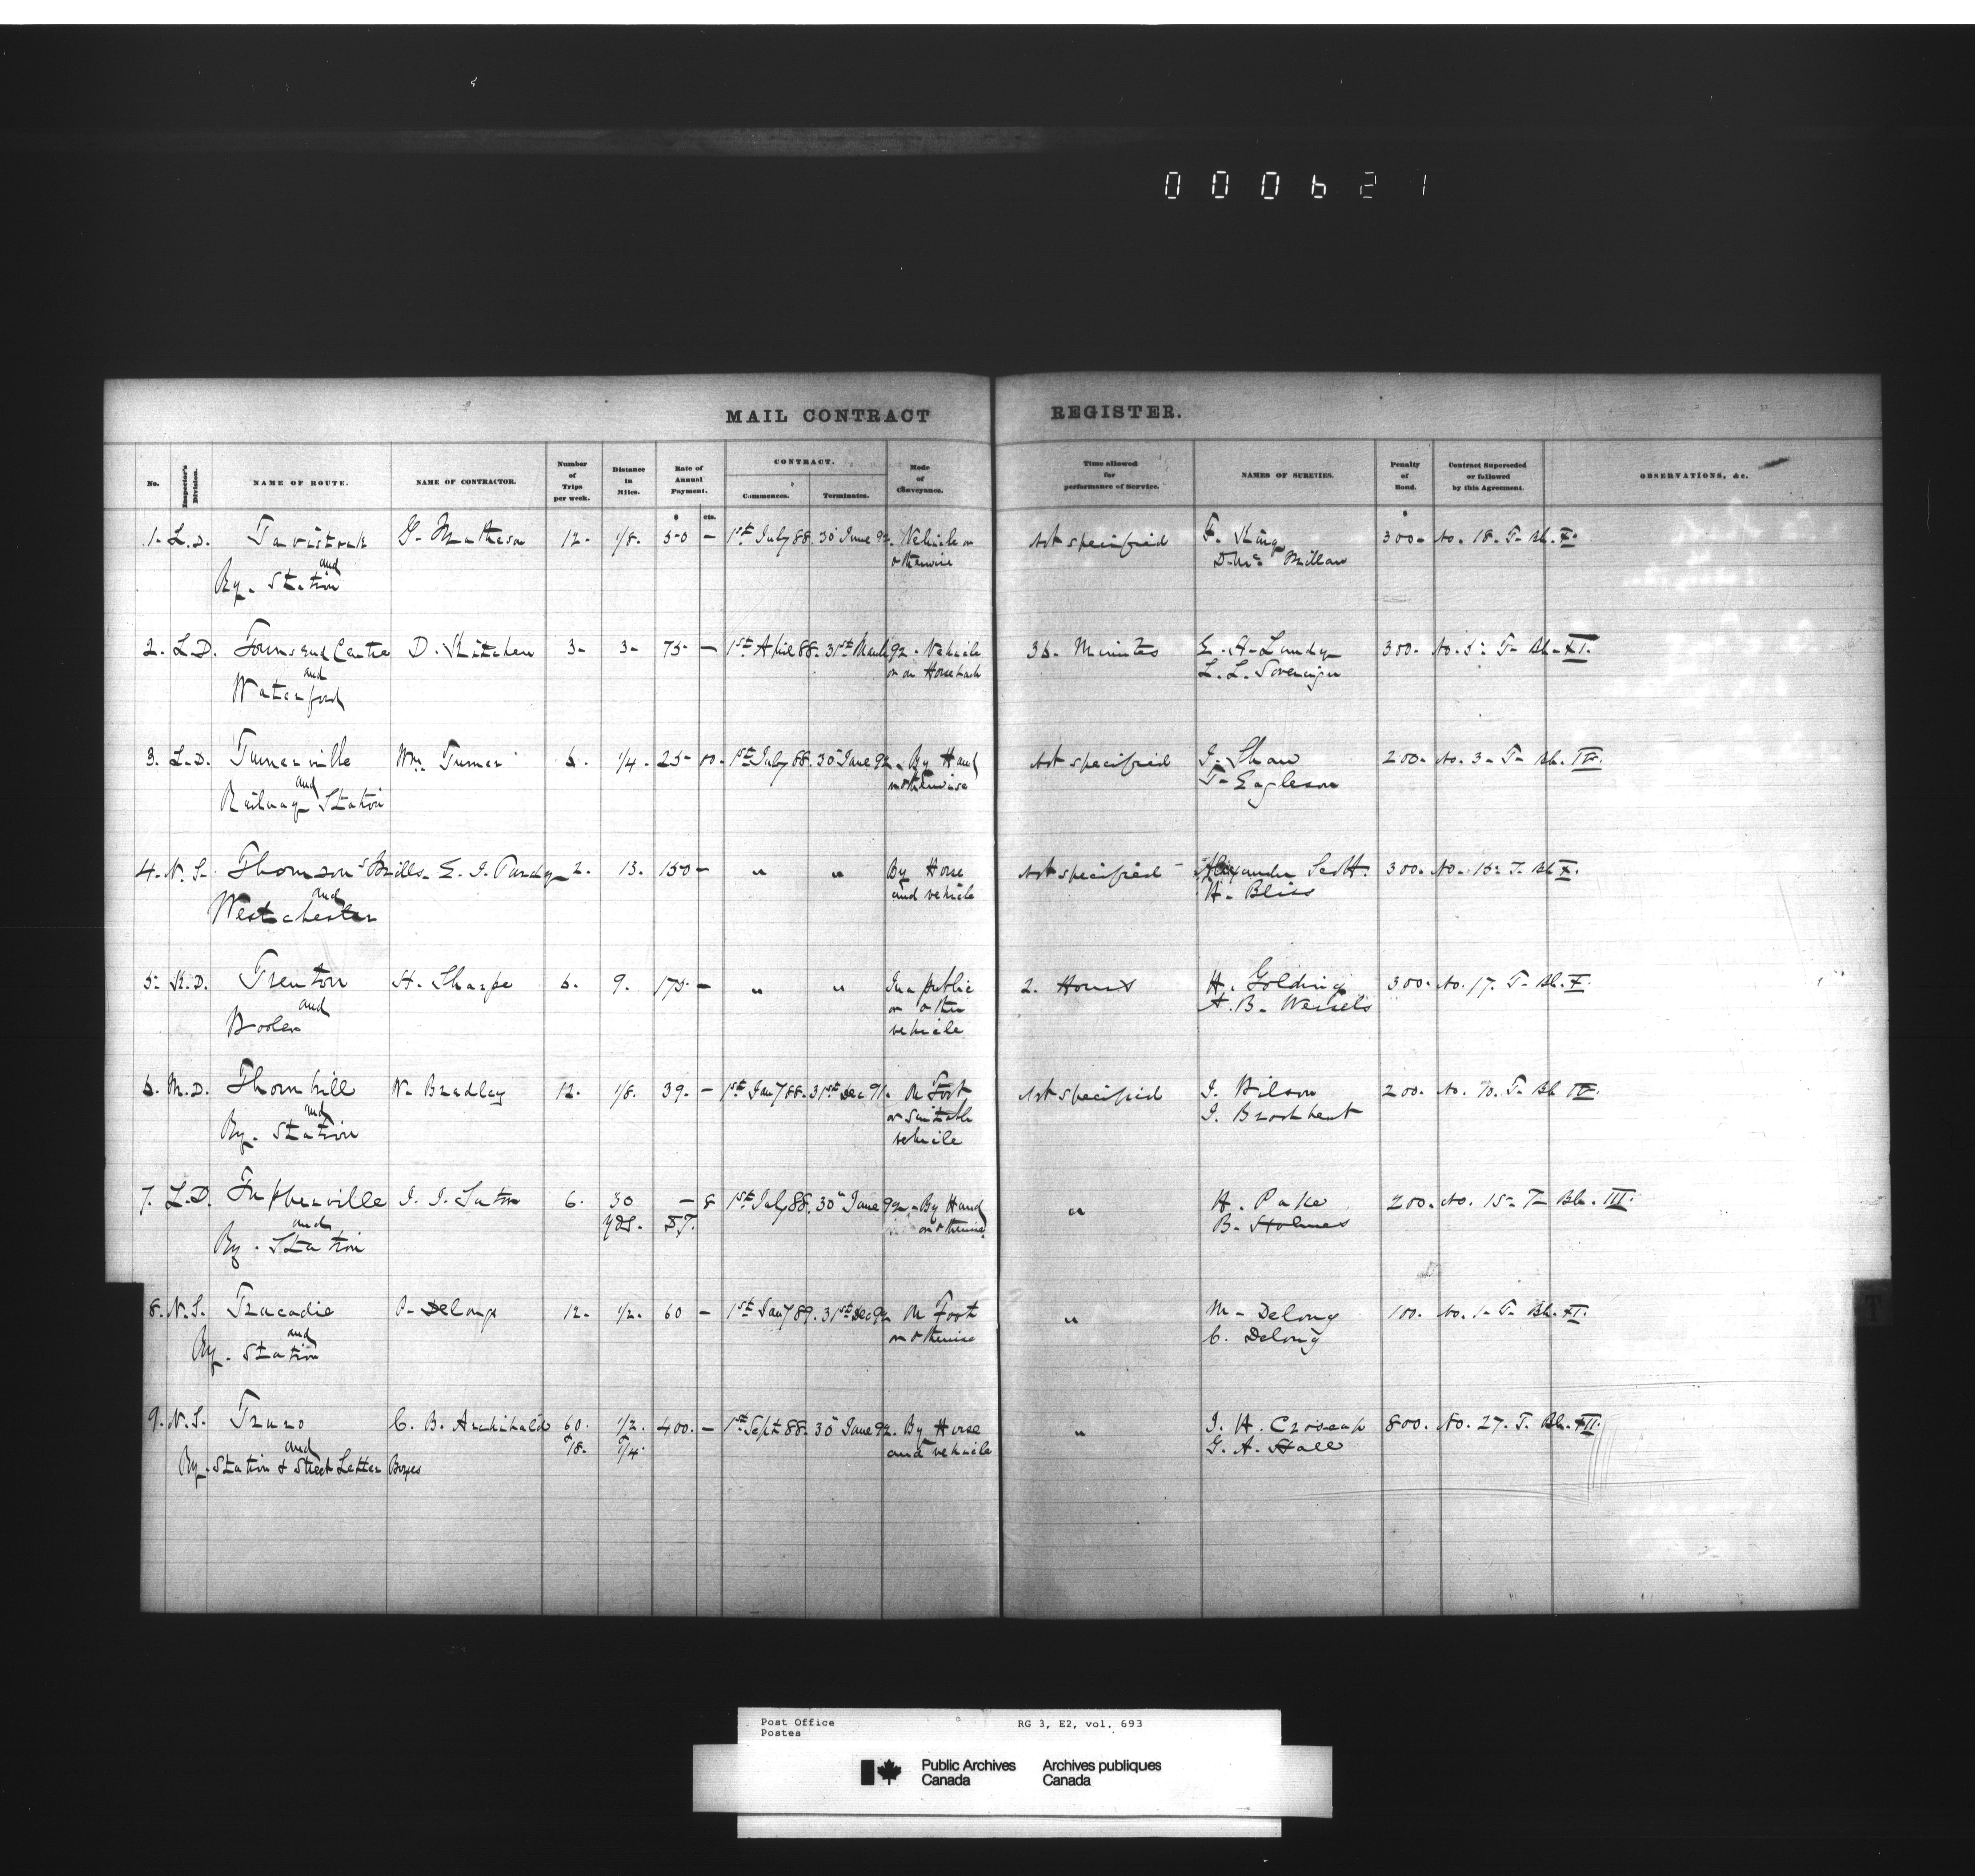 000621
MAIL CONTRACT REGISTER.
No. Inspector's Division. NAME OF ROUTE. NAME OF CONTRACTOR. Number of Trips per week. Distance in Miles. Rate of Annual Payment. CONTRACT. Commences. Terminates. Mode of Conveyance. Time allowed for performance of Service. NAMES OF SURETIES. Penalty of Bond. Contract Superseded or followed by this Agreement. OBSERVATIONS, &c.
$ cts. $
1. L.D. Tavistock G. Matheson 12. 1/8. 50 — 1st July 88. 30 June 92. Vehicle or Not specified F. King 300. No. 18. T. Bk. X.
and otherwise D. Mc Millan
Ry. Station
2. L.D. Townsend Centre D. Kitchen 3. 3. 75 — 1st April 88. 31st March 92. Vehicle Minutes E. A. Landy 300. No. 5. T. Bk. XI.
and or on Horseback L. L. Sovereign
Waterford
3. L.D. Turnerville Wm. Turner 6. 1/4. 25 00. 1st July 88. 30 June 92. By Hand Not specified J. Shaw 200. No. 3. T. Bk.
and or otherwise T. Eagleson
Railway Station
4. N.S. Thomson's Mills E. J. Purdy 2. 13. 150 — " " By Horse Not specified Alexander Scott. 300. No. 15. T. Bk. X.
and and vehicle H. Bliss
Westchester
5. K.D. Trenton H. Sharpe 6. 9. 175. — " " In a public 2. Hours H. Golding 300. No. 17. T. Bk. X.
and or other A. B. Wessels
Wooler vehicle
6. M.D. Thornhill W. Bradley 12. 1/8. 39. — 1st Jany 88. 31st Dec 91. On Foot Not specified J. Wilson 200. No. T. Bk.
and or suitable J. Brockbent
Ry. Station vehicle
7. L.D. Tupperville J. J. 6. 30 — 8 1st July 88. 30 June 92. By Hand " H. Pake 200. No. 15. T. Bk. III.
and yds. or otherwise B. Holmes
Ry. Station
8. N.S. Tracadie P. Delong 12. 1/2. 60 — 1st Jany 89. 31st Dec 92. On Foot " M. Delong 100. No. 1. T. Bk. XI.
and or otherwise C. Delong
Ry. Station
9. N.S. Truro C. B. Archibald 60. 1/2. 400. — 1st Sept 88. 30 June 92. By Horse " J. H. Croscup 800. No. 27. T. Bk. XII.
and & 18. & 1/4. and vehicle G. A. Hall
Ry. Station & Street Letter Boxes
T
Post Office RG 3, E2, vol. 693
Postes
Public Archives Archives publiques
Canada Canada